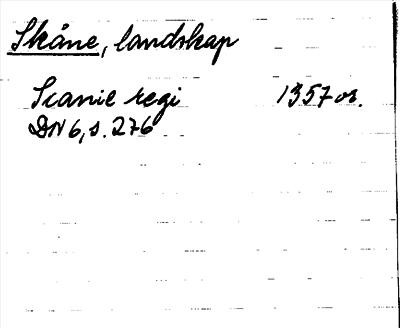 Skåne, landskap
Scanie regi 1357 or.
DN 6, s. 276